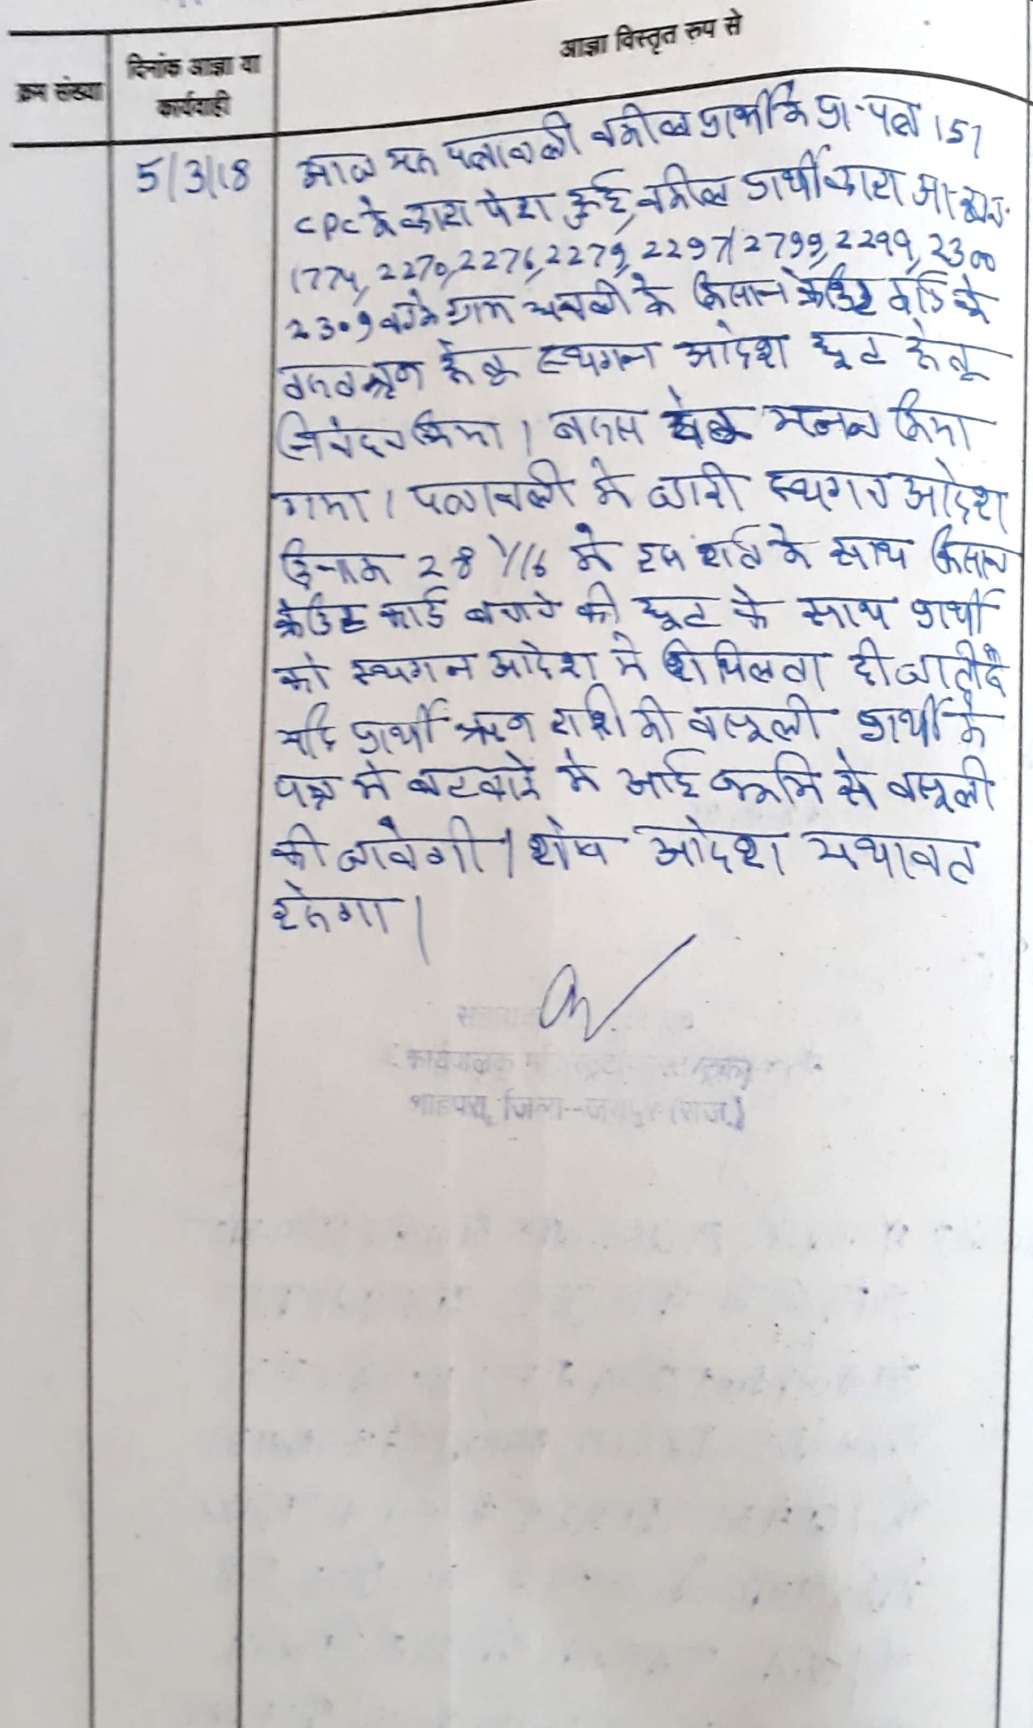 आज्ञा विस्तृत रुप से
क्रम संख्या
दिनांक आज्ञा या
कार्यवाही
5/3/18
आज यह पत्रावली वकील प्रार्थी के प्रा. पत्र 151
CPC के द्वारा पेश हुई, वकील प्रार्थी द्वारा आ.
1774, 2270, 2276, 2279, 2297/2799, 2299, 2300
2309 वाके ग्राम के किसान क्रेडिट कार्ड के
ऋण हेतु स्थगन आदेश छूट हेतू
निवेदन किया। बहस मनन किया
गया। पत्रावली मे जारी स्थगन आदेश
दिनांक 28 1/16 मे इस शर्त के साथ किसान
क्रेडिट कार्ड बनाने की छूट के साथ प्रार्थी
को स्थगन आदेश मे शिथिलता दी जाती है
यदि प्रार्थी ऋन राशि की वसूली प्रार्थी के
पक्ष मे बटवारे मे आई भूमि से वसूली
की जावेगी। शेष आदेश यथावत
रहेगा।
कार्यपालक
शाहपुरा, जिला--जयपुर (राज.)